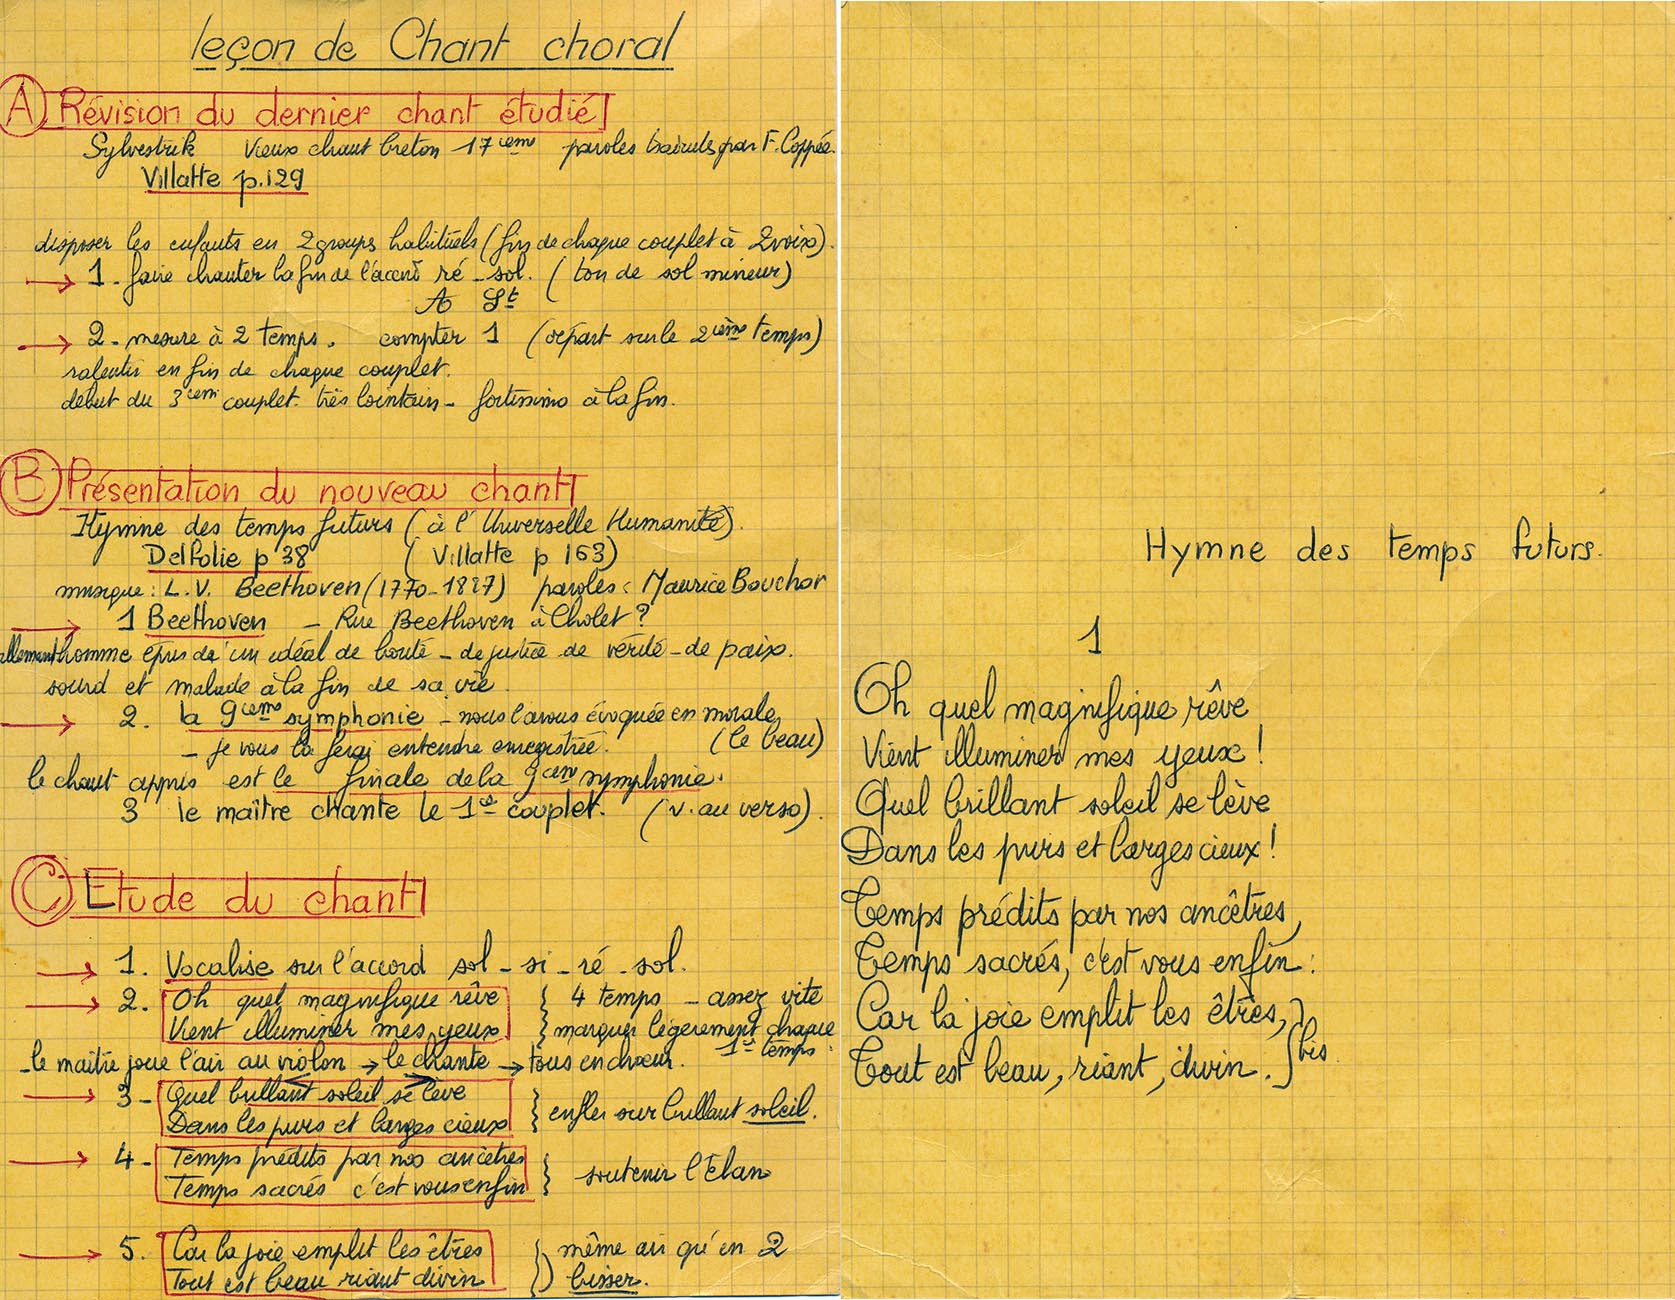 leçon de Chant choral
A Révision du dernier chant étudié
Sylvestrik Vieux chant breton 17ième paroles traduites par F. Coppée
Villatte p.129
disposer les enfants en 2 groups habituels (fin de chaque couplet à 2 voix).
→ 1 - faire chanter la fin de l'accord ré - sol. (ton de sol mineur)
→ 2 - mesure à 2 temps. compter 1 (départ sur le 2ième temps)
ralentir en fin de chaque couplet.
début du 3ième couplet très lointain - fortissimo à la fin.
B Présentation du nouveau chant
Hymne des temps futurs (à l'Universelle Humanité).
Delfolie p 38 (Villatte p 163)
musique : L.V. Beethoven (1770-1827) paroles : Maurice Bouchor
→ 1 Beethoven - Rue Beethoven à Cholet ?
allemand homme épris d'un idéal de bonté - de justice de vérité - de paix.
sourd et malade à la fin de sa vie.
→ 2. la 9ième symphonie - nous l'avons évoquée en morale
- je vous la ferai entendre enregistrée. (le beau)
le chant appris est le finale de la 9ième symphonie.
3 le maître chante le 1er couplet. (v. au verso).
C Etude du chant
→ 1. Vocalise sur l'accord sol - si - ré - sol.
→ 2. Oh quel magnifique rêve { 4 temps - assez vite
Vient illuminer mes yeux { marquer légèrement chaque
1er temps.
- le maître joue l'air au violon → le chante → tous en chœur.
→ 3 - Quel brillant soleil se lève
Dans les purs et larges cieux } enfler sur brillant soleil.
→ 4 - Temps prédits par nos ancêtres
Temps sacrés c'est vous enfin } soutenir l'élan
→ 5. Car la joie emplit les êtres } même air qu'en 2
Tout est beau riant divin bisser.
Hymne des temps futurs.
1
Oh quel magnifique rêve
Vient illuminer mes yeux !
Quel brillant soleil se lève
Dans les purs et larges cieux !
Temps prédits par nos ancêtres,
Temps sacrés, c'est vous enfin !
Car la joie emplit les êtres, }
Tout est beau, riant, divin. } bis